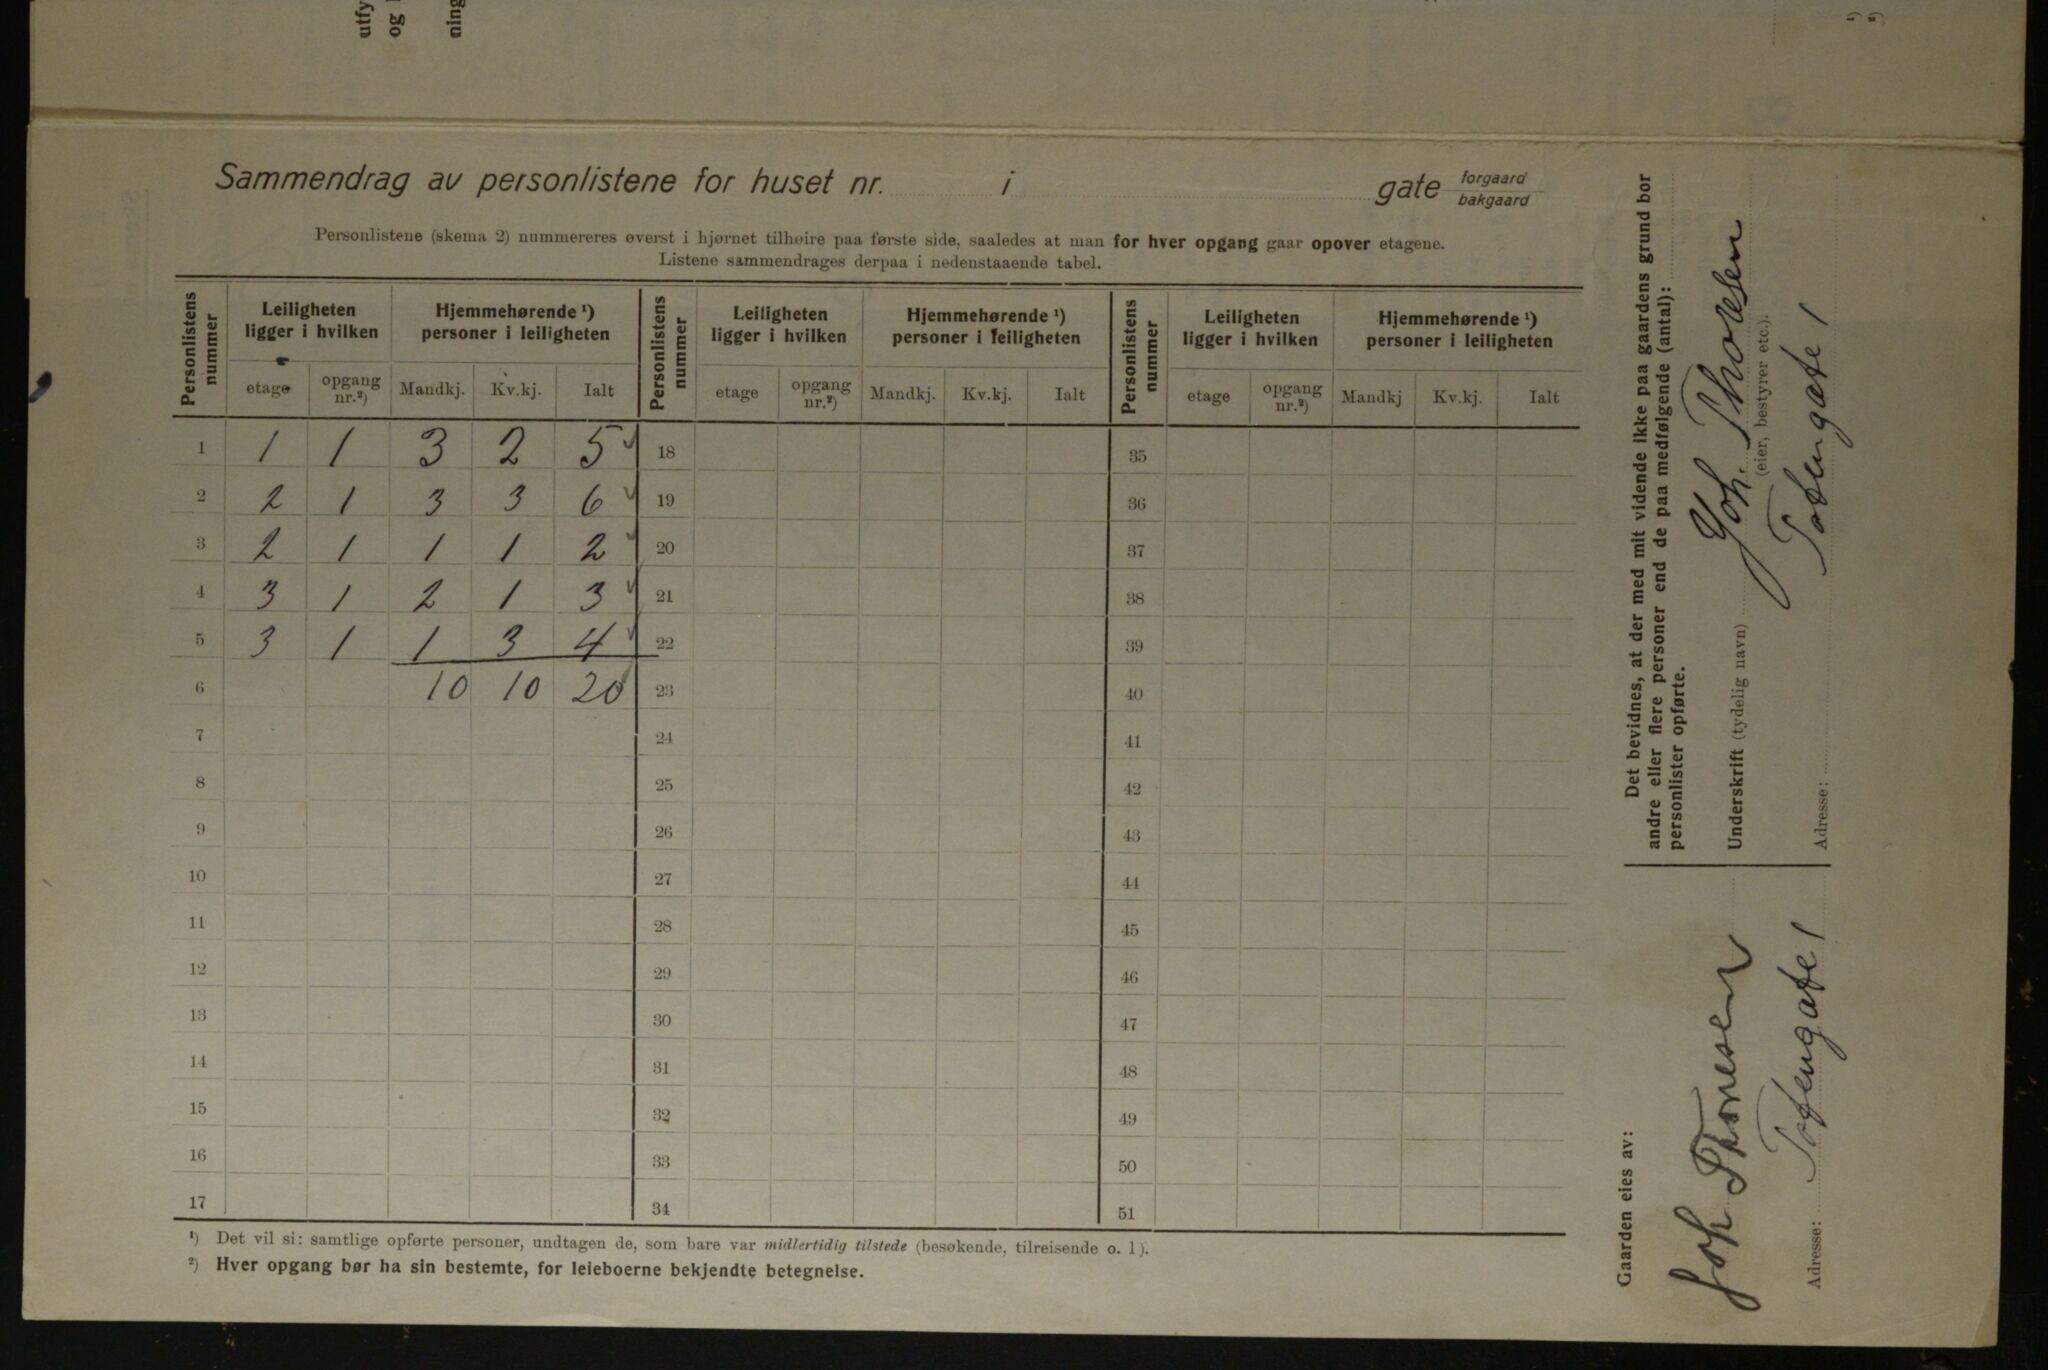 utfy
og
ning
¹)
²)
Sammendrag av personlistene for huset nr. i gate forgaard
bakgaard
Personlistene (skema 2) nummereres øverst i hjørnet tilhøire paa første side, saaledes at man for hver opgang gaar opover etagene.
Listene sammendrages derpaa i nedenstaaende tabel.
Personlistens nummer | Leiligheten ligger i hvilken | Hjemmehørende ¹) personer i leiligheten | Personlistens nummer | Leiligheten ligger i hvilken | Hjemmehørende ¹) personer i leiligheten | Personlistens nummer | Leiligheten ligger i hvilken | Hjemmehørende ¹) personer i leiligheten
etage | opgang nr.²) | Mandkj. | Kv.kj. | Ialt | etage | opgang nr.²) | Mandkj. | Kv.kj. | Ialt | etage | opgang nr.²) | Mandkj | Kv.kj. | Ialt
1 | 1 | 1 | 3 | 2 | 5 | 18 | 35
2 | 2 | 1 | 3 | 3 | 6 | 19 | 36
3 | 2 | 1 | 1 | 1 | 2 | 20 | 37
4 | 3 | 1 | 2 | 1 | 3 | 21 | 38
5 | 3 | 1 | 1 | 3 | 4 | 22 | 39
6 | 10 | 10 | 20 | 23 | 40
7 | 24 | 41
8 | 25 | 42
9 | 26 | 43
10 | 27 | 44
11 | 28 | 45
12 | 29 | 46
13 | 30 | 47
14 | 31 | 48
15 | 32 | 49
16 | 33 | 50
17 | 34 | 51
¹) Det vil si: samtlige opførte personer, undtagen de, som bare var midlertidig tilstede (besøkende, tilreisende o. l).
²) Hver opgang bør ha sin bestemte, for leieboerne bekjendte betegnelse.
Det bevidnes, at der med mit vidende ikke paa gaardens grund bor
andre eller flere personer end de paa medfølgende (antal):
personlister opførte.
Underskrift (tydelig navn) Joh. Thoresen
(eier, bestyrer etc.).
Adresse: Tofengate 1
Gaarden eies av:
Joh Thoresen
Adresse: Tofengate 1